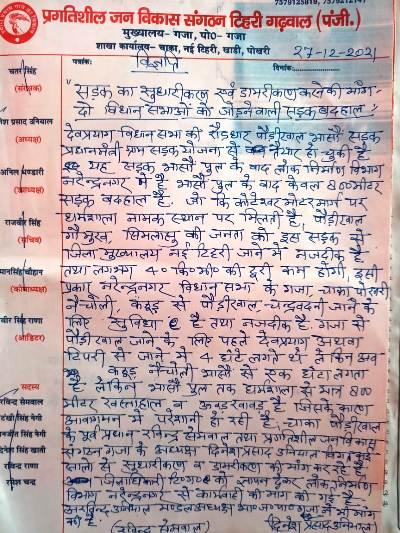 7579215819,
प्रगतिशील जन विकास संगठन टिहरी गढ़वाल (पंजी.)
मुख्यालय- गजा, पो०- गजा
शाखा कार्यालय- चाका, नई टिहरी, खाड़ी, पोखरी
पत्रांक: दिनांक: 27-12-2021
विज्ञप्ति
"सड़क का सुधारीकरण एवं डामरीकरण करने की मांग-
दो विधान सभाओं को जोड़ने वाली सड़क बदहाल"
देवप्रयाग विधान सभा की रौडधार पौडीखाल भासौं सड़क
प्रधानमंत्री ग्राम सड़क योजना से तैयार हो चुकी है
यह सड़क भासौं पुल के बाद लोक निर्माण विभाग
नरेन्द्रनगर में है भासौं पुल के बाद केवल 800 मीटर
सड़क बदहाल है. जो कि कोटेश्वर मोटर मार्ग पर
धामशाला नामक स्थान पर मिलती है, पौडीखाल
गौमुख, सिमलासु की जनता को इस सड़क से
जिला मुख्यालय नई टिहरी जाने में नजदीक है
तथा लगभग 40 कि०मी० की दूरी कम होगी, इसी
प्रकार नरेन्द्रनगर विधान सभा के गजा, चाका पोखरी
नैचोली, से पौडीखाल, चन्द्रबदनी जाने के
लिए सुविधा है तथा नजदीक है. गजा से
पौडीखाल जाने के लिए पहले देवप्रयाग अथवा
टिपरी से जाने में 4 घंटे लगते थे लेकिन अब
नैचोली भासौं से एक घंटा लगता
है लेकिन भासौं पुल तक धामशाला से मात्र 800
मीटर खस्ताहाल व ऊबडखाबड है जिसके कारण
आवागमन में परेशानी हो रही है, चाका पौडीखाल
के पूर्व प्रधान रविन्द्र सेमवाल तथा प्रगतिशील जन विकास
संगठन गजा के अध्यक्ष दिनेश प्रसाद उनियाल विगत कई
सालों से सुधारीकरण व डामरीकरण की मांग कर रहे हैं
जिलाधिकारी टि०ग० को ज्ञापन देकर लोक निर्माण
विभाग नरेन्द्रनगर से कार्यवाही की मांग की गई है
उनियाल मण्डल अध्यक्ष भा०ज०पा० गजा ने भी मांग
की है.
(रविन्द्र सेमवाल) (दिनेश प्रसाद उनियाल)
सिंह
(संरक्षक)
प्रसाद उनियाल
(अध्यक्ष)
अनिल भण्डारी
(उपाध्यक्ष)
राजवीर सिंह
(सचिव)
मानसिंह चौहान
(कोषाध्यक्ष)
सिंह राणा
(ऑडिटर)
सदस्य
रविन्द्र सेमवाल
सिंह नेगी
सिंह नेगी
दिनेश सिंह खाती
रविन्द्र राणा
रमेश चन्द